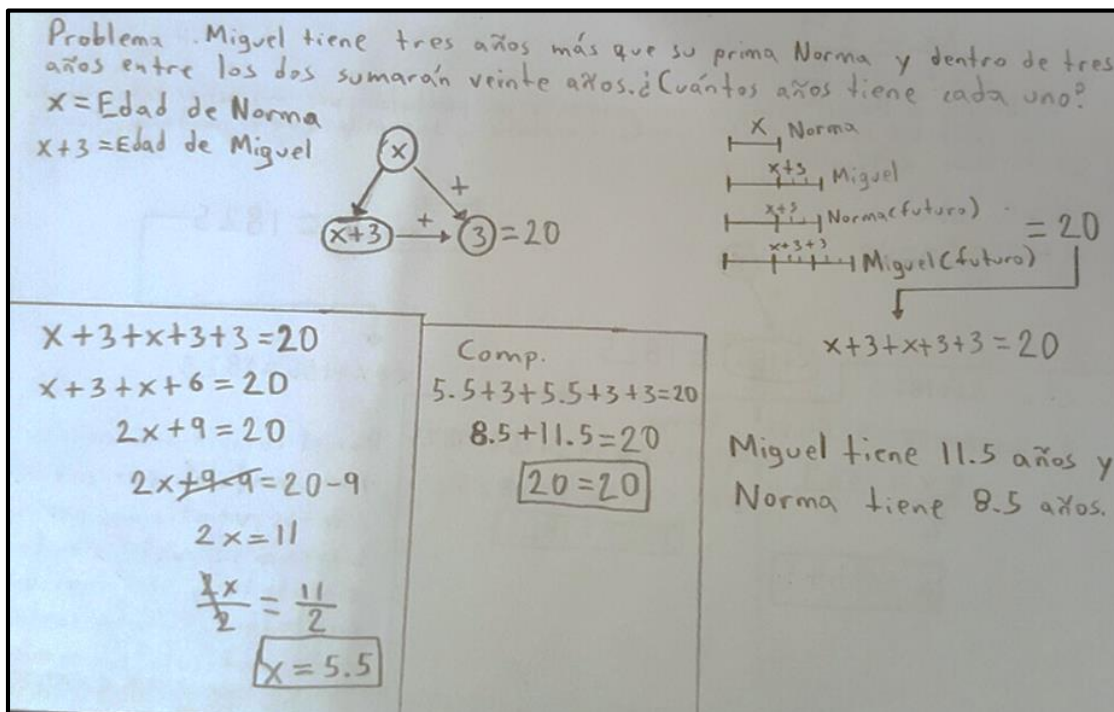 Problema. Miguel tiene tres años más que su prima Norma y dentro de tres
años entre los dos sumarán veinte años. ¿Cuántos años tiene cada uno?
x = Edad de Norma
x+3 = Edad de Miguel
x
+
x+3 + 3 = 20
x Norma
x+3 Miguel
x+3 Norma (futuro)
= 20
x+3+3 Miguel (futuro)
x+3+x+3+3=20
x+3+x+3+3=20
x+3+x+6=20
2x+9=20
2x+9-9=20-9
2x=11
2x/2 = 11/2
x=5.5
Comp.
5.5+3+5.5+3+3=20
8.5+11.5=20
20=20
Miguel tiene 11.5 años y
Norma tiene 8.5 años.